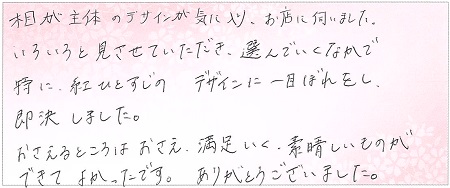 相が主体のデザインが気に入り、お店に伺いました。
いろいろと見させていただき、選んでいくなかで
特に、紅ひとすじの デザインに一目ぼれをし、
即決しました。
おさえるところはおさえ、満足いく、素晴しいものが
できてよかったです。 ありがとうございました。